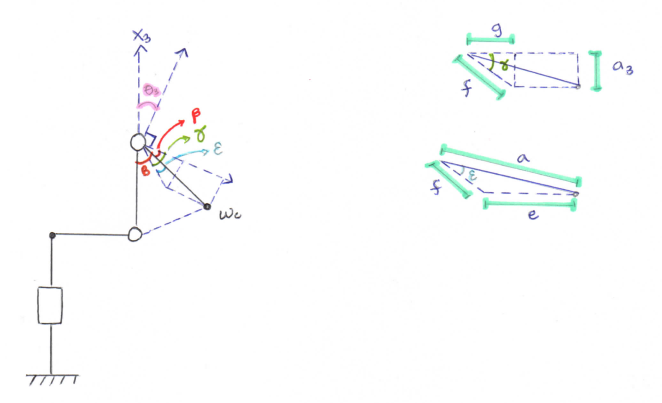 X₃
θ₃
β
γ
ε
B
Wc
g
γ
f
a₃
a
f
ε
e